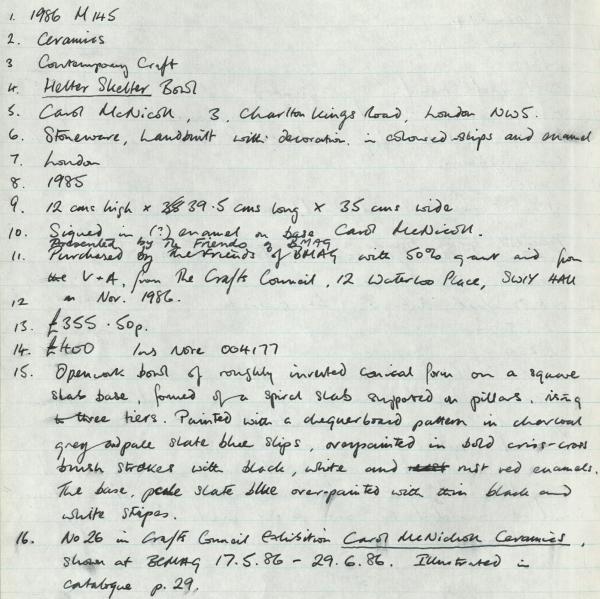 1. 1986 M145
2. Ceramics
3 Contemporary Craft
4. Helter Skelter Bowl
5. Carol McNicoll, 3, Charlton Kings Road, London NW5.
6. Stoneware, handbuilt with decoration in coloured slips and enamel
7. London
8. 1985
9. 12 cms high × 39.5 cms long × 35 cms wide
10. Signed in (?) enamel on base Carol McNicoll.
Presented by The Friends of BMAG
11. Purchased by the Friends of BMAG with 50% grant aid from
the V+A, from The Crafts Council, 12 Waterloo Place, SW1Y 4AU
12 in Nov. 1986.
13. £355.50p.
14. £400 Ins Note 004177
15. Openwork bowl of roughly inverted conical form on a square
slab base, formed of a spiral slab supported on pillars, rising
to three tiers. Painted with a chequerboard pattern in charcoal
grey and pale slate blue slips, overpainted in bold criss-cross
brush strokes with black, white and rust red enamels.
The base, pale slate blue over-painted with thin black and
white stripes.
16. No 26 in Crafts Council Exhibition Carol McNicholl Ceramics,
shown at BCMAG 17.5.86 - 29.6.86. Illustrated in
catalogue p.29.